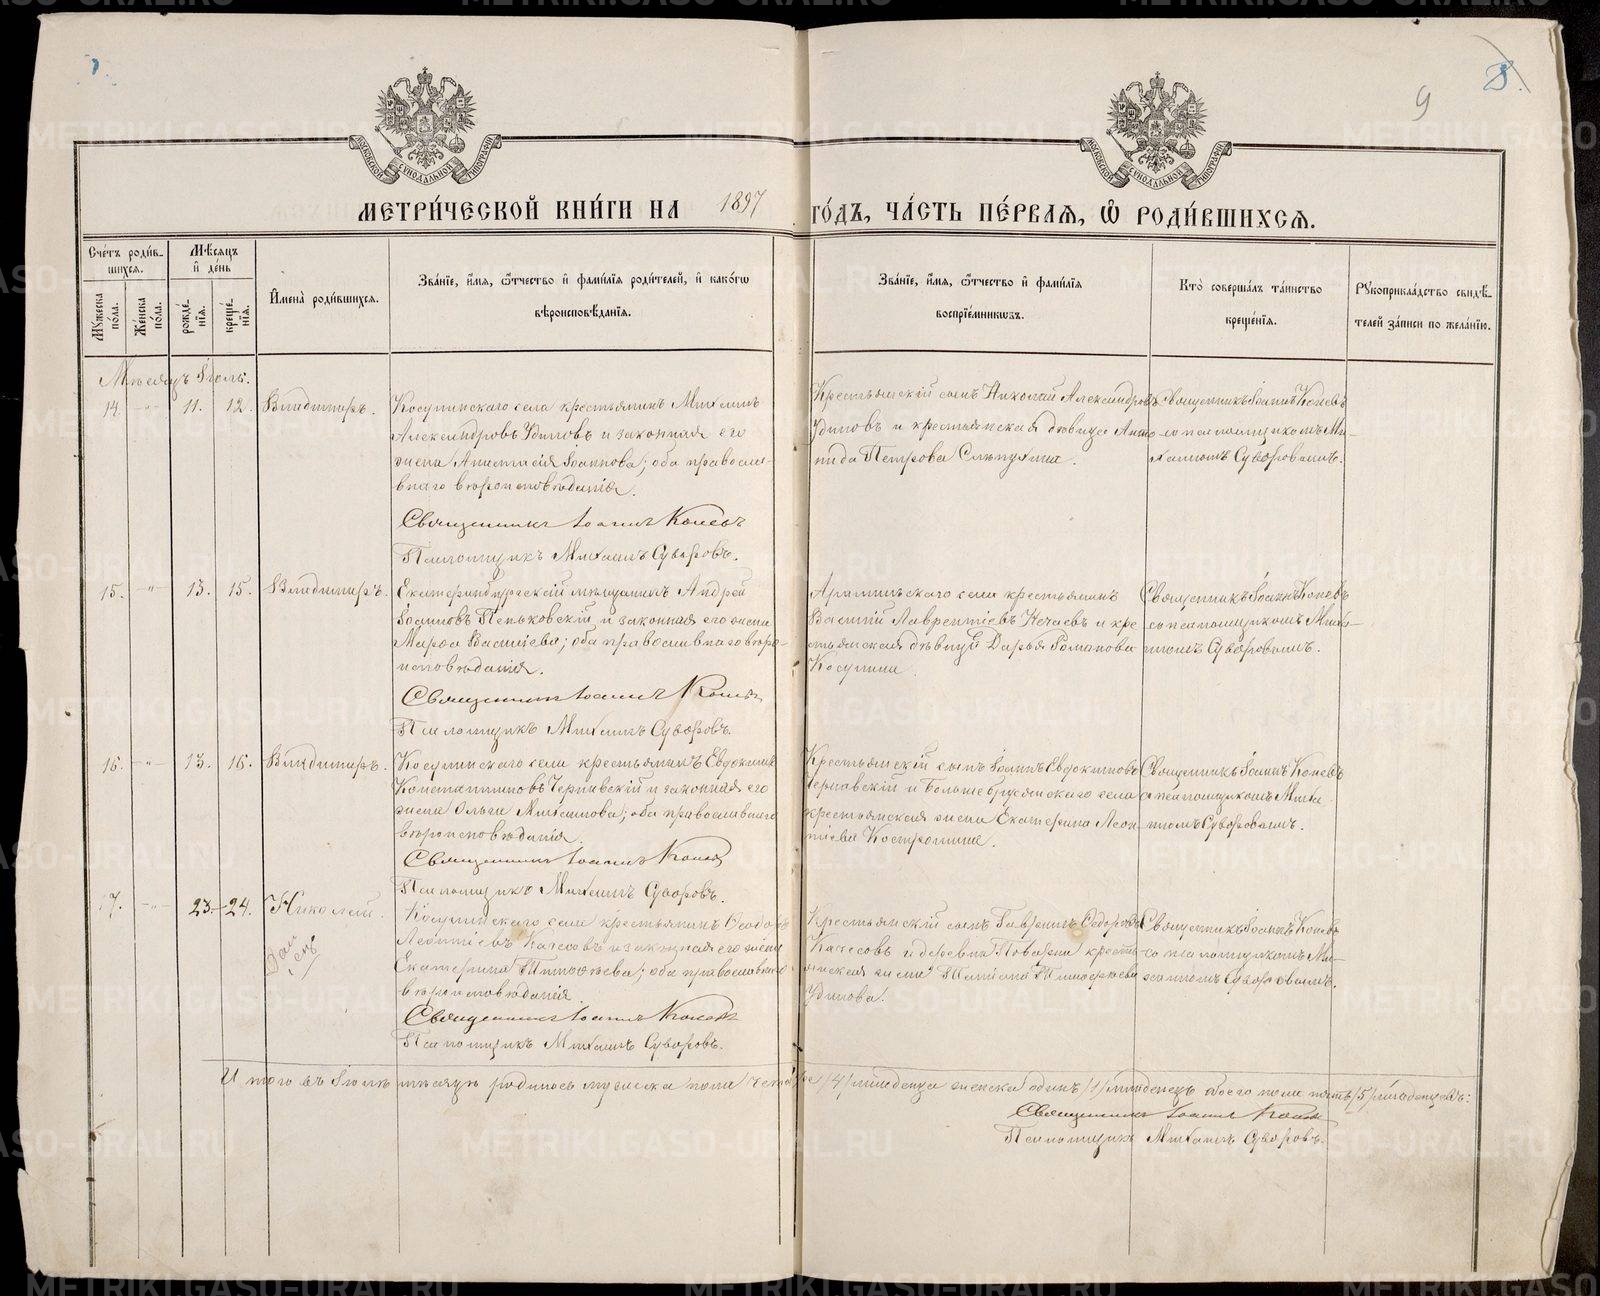 9
МОСКОВСКОЙ СѴНОДАЛЬНОЙ ТИПОГРАФІИ
МОСКОВСКОЙ СѴНОДАЛЬНОЙ ТИПОГРАФІИ
МЕТРИ́ЧЕСКОЙ КНИ́ГИ НА 1897 ГО́ДЪ, ЧА́СТЬ ПЕ́РВАѦ, Ѡ҆ РОДИ́ВШИХСѦ.
Сче́тъ роди́в-
шихся.
Мѣ́сяцъ
и҆ де́нь
Мꙋжеска по́ла.
Же́нска по́ла.
рожде́-
нїѧ.
креще́-
нїѧ.
И҆мена̀ роди́вшихсѧ.
Зва́нїе, и҆́мѧ, ѻ҆́тчество и҆ фами́лїѧ роди́телей, и҆ како́гѡ
вѣроисповѣ́данїѧ.
Зва́нїе, и҆́мѧ, ѻ҆́тчество и҆ фами́лїѧ
воспрїе́мникѡвъ.
Кто̀ соверша́лъ та́инство
креще́нїѧ.
Рꙋкоприкла́дство свидѣ́-
телей за́писи по жела́нїю.
Мѣсяцъ Іюль.
14. -„- 11. 12. Владимиръ.
Косулинскаго села крестьянинъ Михаилъ
Александровъ Удиловъ и законная его
жена Анастасія Іоаннова; оба православ-
наго вѣроисповѣданія.
Священникъ Іоаннъ Коневъ
Псаломщикъ Михаилъ Суворовъ.
Крестьянскій сынъ Николай Александровъ
Удиловъ и крестьянская дѣвица
Петрова
Священникъ Іоаннъ Коневъ
съ псаломщикомъ Ми-
хаиломъ Суворовымъ.
15. -„- 13. 15. Владимиръ.
Екатеринбургскій мѣщанинъ Андрей
Іоанновъ Пеньковскій и законная его жена
Марѳа Василіева; оба православнаго вѣро-
исповѣданія.
Священникъ Іоаннъ Коневъ
Псаломщикъ Михаилъ Суворовъ.
Арамильскаго села крестьянинъ
Василій Лаврентіевъ Нечаевъ и кре
стьянская дѣвица Дарья Романова
Косулина.
Священникъ Іоаннъ Коневъ
съ псаломщикомъ Миха-
иломъ Суворовымъ.
16. -„- 13. 16. Владимиръ.
Косулинскаго села крестьянинъ Евдокимъ
Константиновъ Чернавскій и законная его
жена Ольга Михаилова; оба православнаго
вѣроисповѣданія.
Священникъ Іоаннъ Коневъ
Псаломщикъ Михаилъ Суворовъ.
Крестьянскій сынъ Іоаннъ Евдокимовъ
Чернавскій и Большебрусянскаго села
крестьянская жена Екатерина Леон-
тіева Костромина.
Священникъ Іоаннъ Коневъ
съ псаломщикомъ Миха
иломъ Суворовымъ.
17. -„- 23. 24. Николай.
Косулинскаго села крестьянинъ Ѳеодоръ
Леонтіевъ Качесовъ и законная его жена
Екатерина Тимоѳеева; оба православнаго
вѣроисповѣданія.
Священникъ Іоаннъ Коневъ
Псаломщикъ Михаилъ Суворовъ.
Крестьянскій сынъ Гавріилъ Ѳедоровъ
Качесовъ и деревни Поварни кресть-
янская жена Татіана Тимоѳеева
Удилова.
Священникъ Іоаннъ Коневъ
съ псаломщикомъ Ми-
хаиломъ Суворовымъ.
Итого въ Іюлѣ мѣсяцѣ родилось мужеска пола четыре /4/ младенца женска одинъ /1/ младенецъ обоего пола пять /5/ младенцевъ:
Священникъ Іоаннъ Коневъ
Псаломщикъ Михаилъ Суворовъ.
METRIKI.GASO-URAL.RU